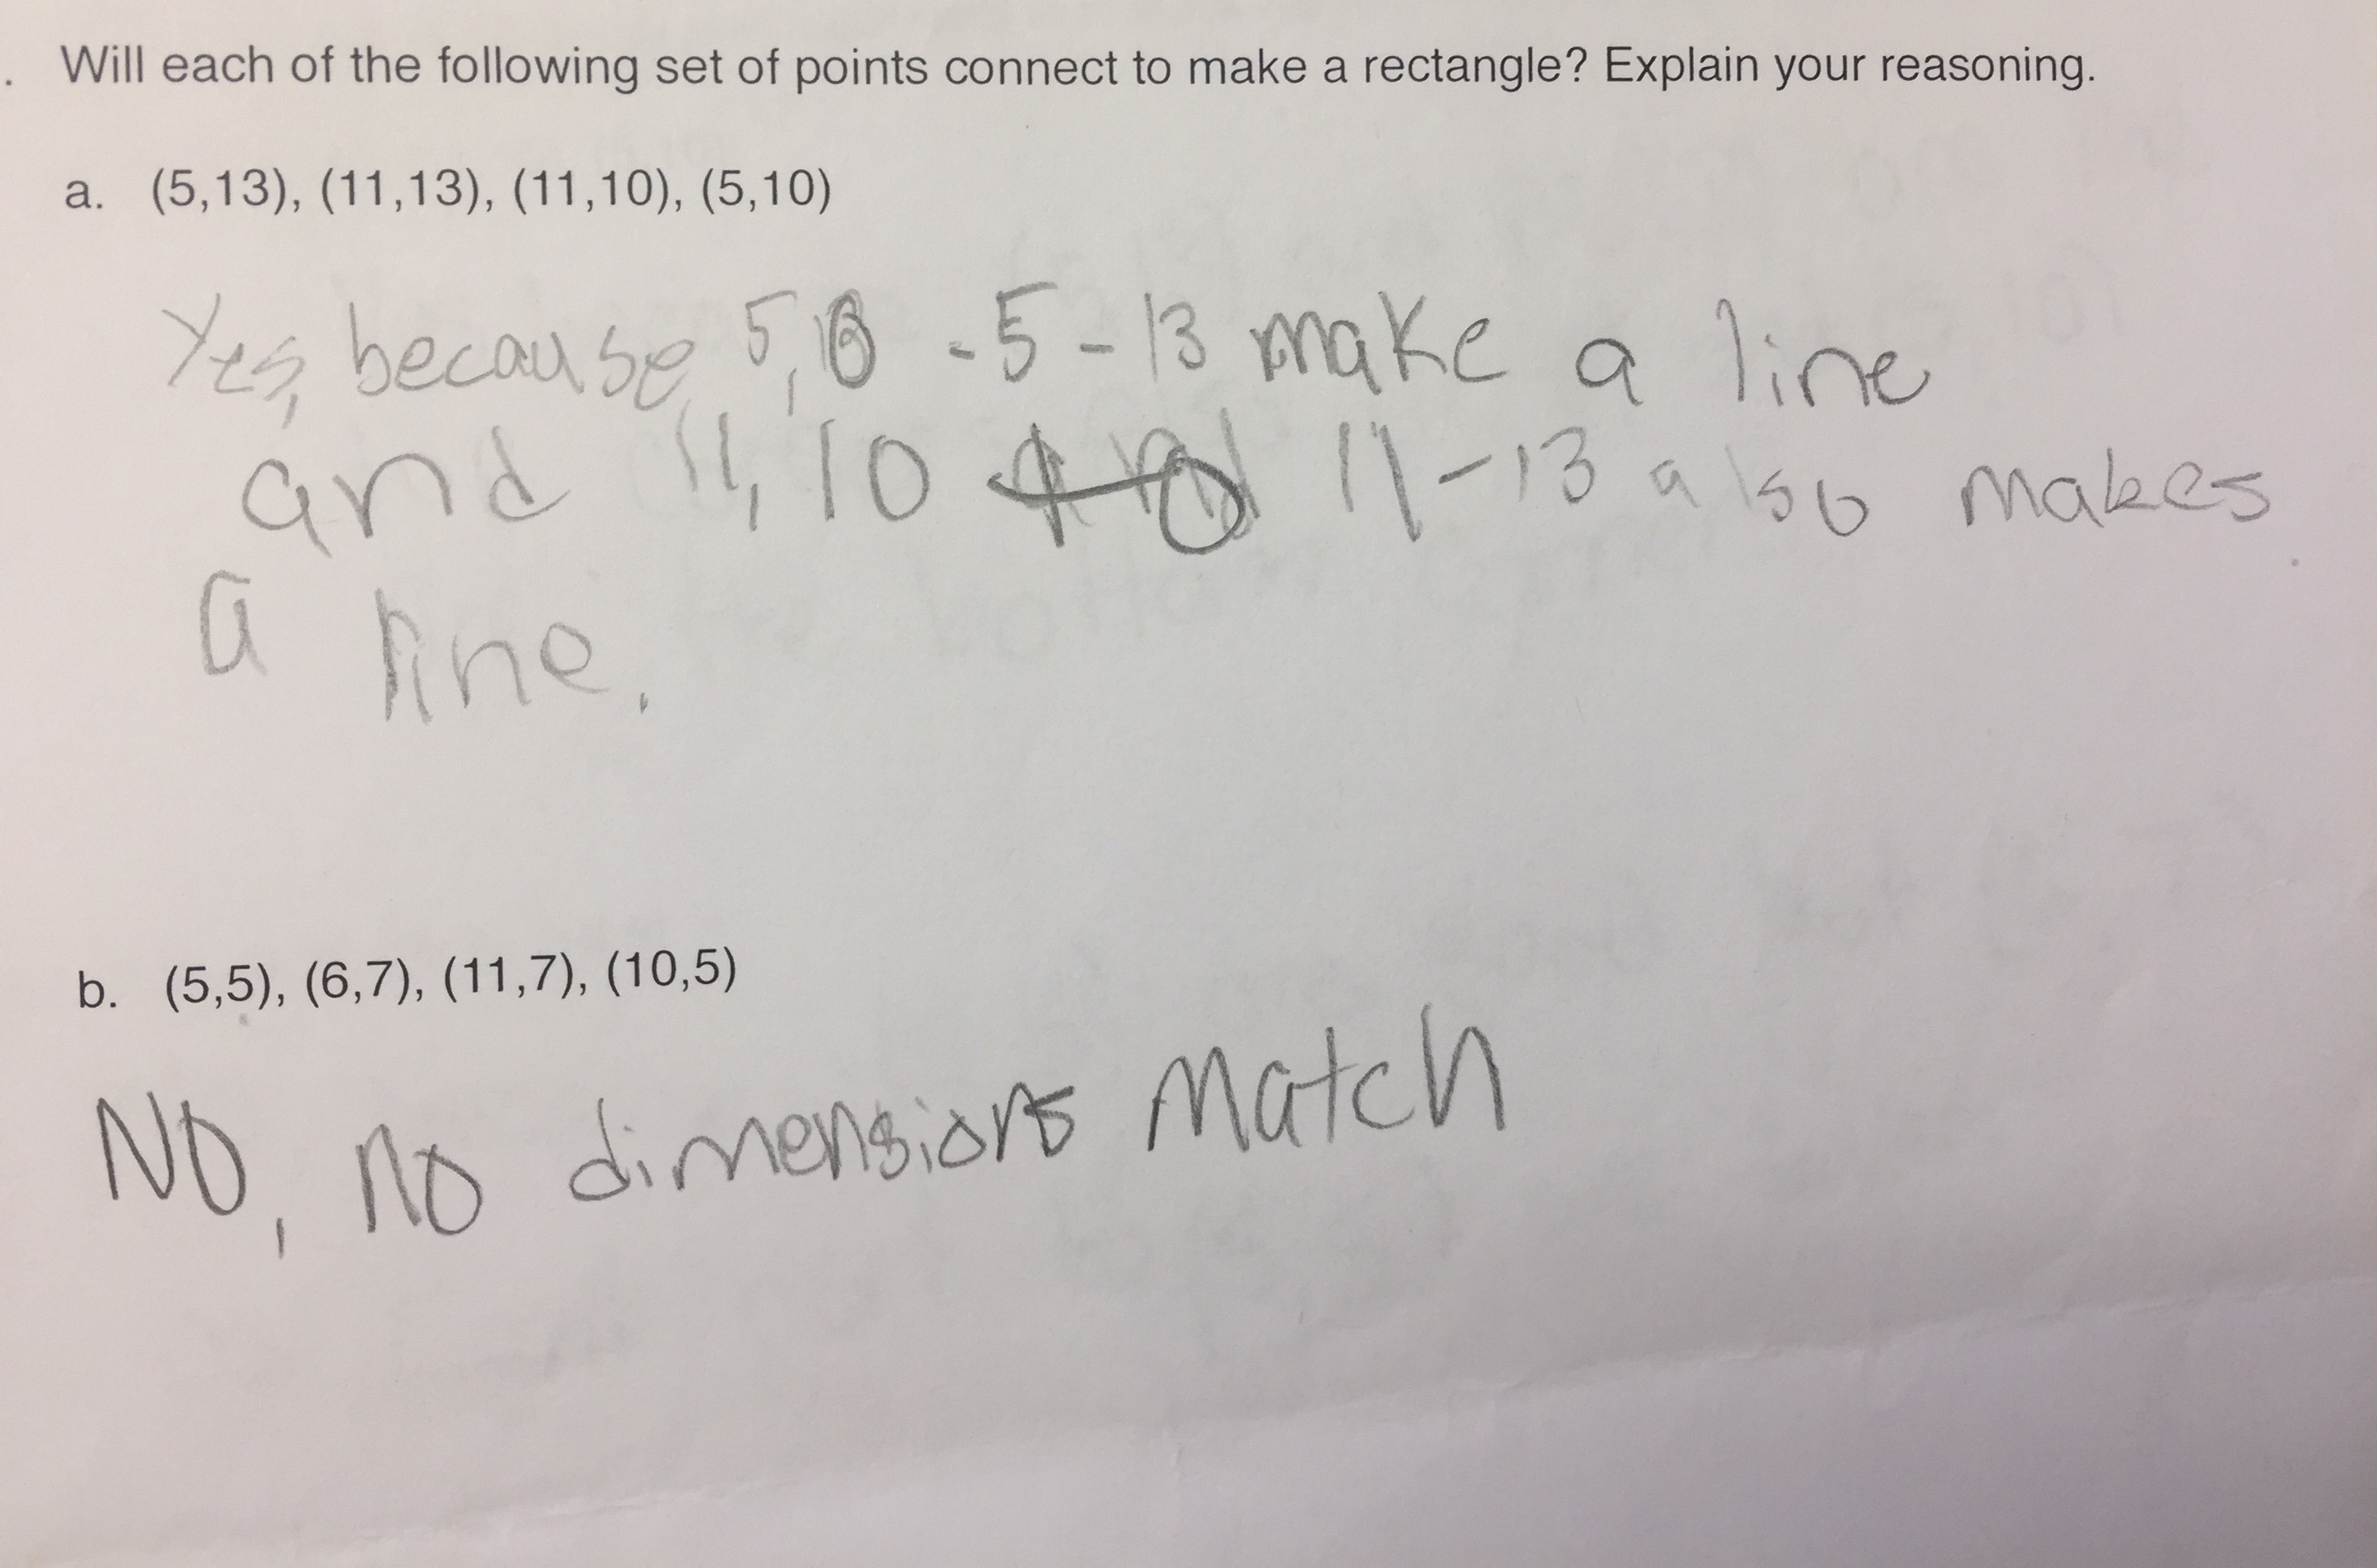 . Will each of the following set of points connect to make a rectangle? Explain your reasoning.
a. (5,13), (11,13), (11,10), (5,10)
Yes, because 5, - 5 - 13 make a line
and 11, 10 11 - 13 also makes
a line.
b. (5,5), (6,7), (11,7), (10,5)
No, no dimensions match